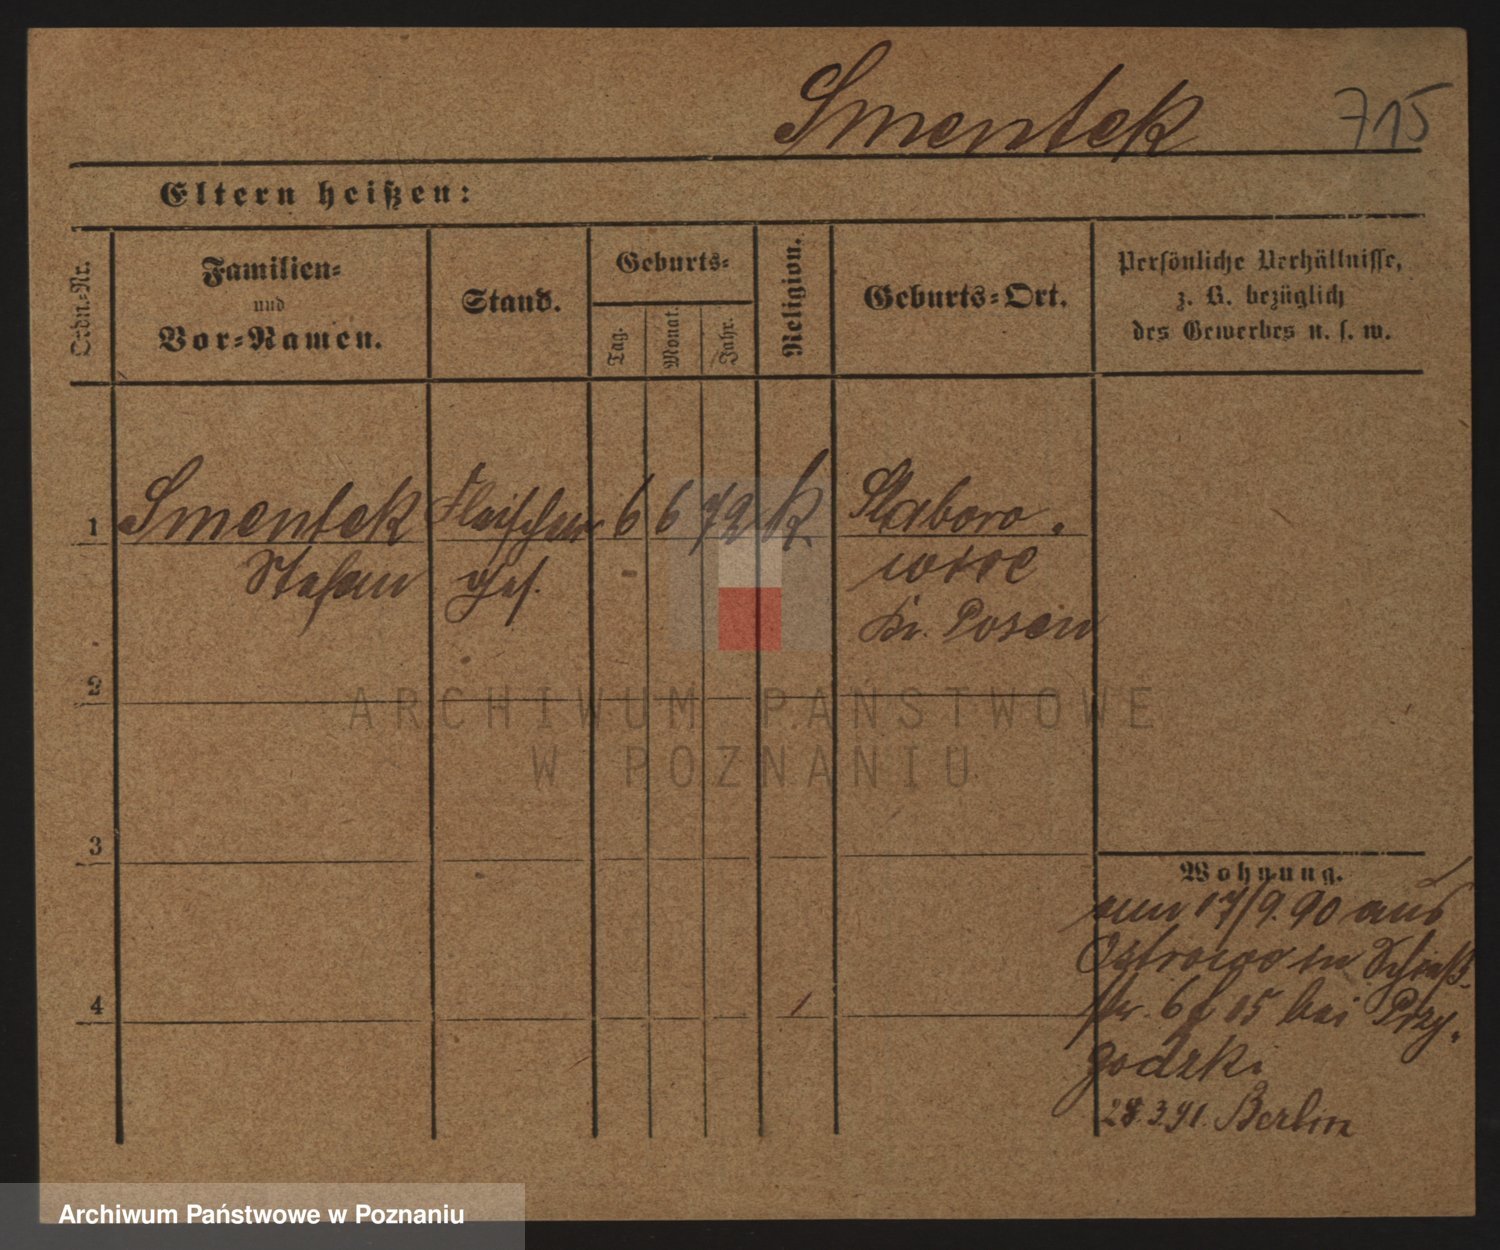 Smentek 715
Eltern heißen:
Ordn.-Nr.
Familien-
und
Vor-Namen.
Stand.
Geburts-
Tag.
Monat.
Jahr.
Religion.
Geburts-Ort.
Persönliche Verhältnisse,
z. B. bezüglich
des Gewerbes u. s. w.
1 Smentek Fleischer 6 6 72 K.
Stefan Ges.
Kr. Posen
2
ARCHIWUM PAŃSTWOWE
W POZNANIU
3
Wohnung.
17/9.90 aus
Ostrowo in Schieß-
str. 6 15 bei Przy-
godzki
28.3.91. Berlin
4
Archiwum Państwowe w Poznaniu